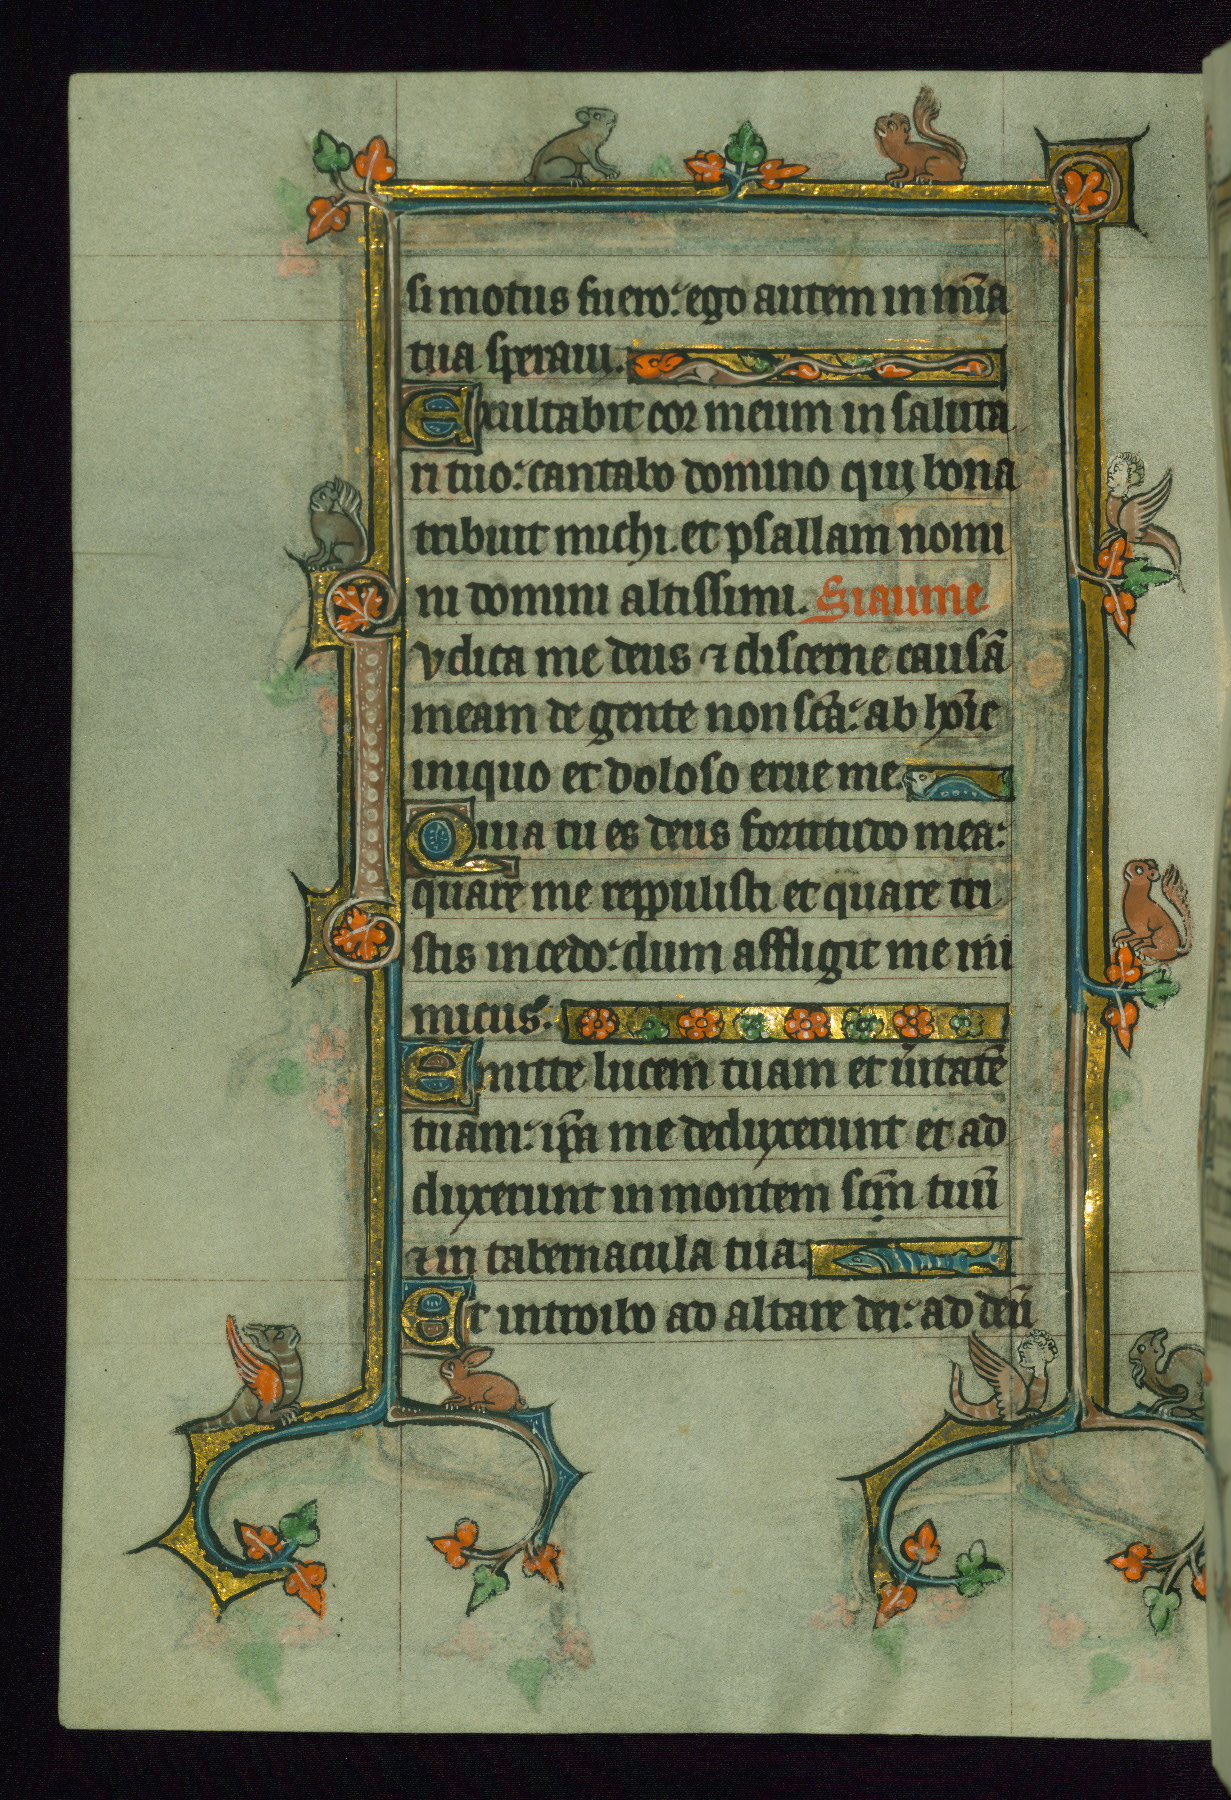 si motus fuero: ego autem in mīa
tua speraui.
Exultabit cor meum in saluta
ri tuo: cantabo domino qui bona
tribuit michi. et psallam nomi
ni domini altissimi.
Iudica me deus ⁊ discerne causā
meam de gente non scā: ab hōie
iniquo et doloso erue me.
Quia tu es deus fortitudo mea:
quare me reppulisti et quare tri
stis incedo: dum affligit me ini
micus.
Emitte lucem tuam et ūitatē
tuam: ip̄a me deduxerunt et ad
duxerunt in montem scm̄ tuū
⁊ in tabernacula tua.
Et introibo ad altare dei: ad deū